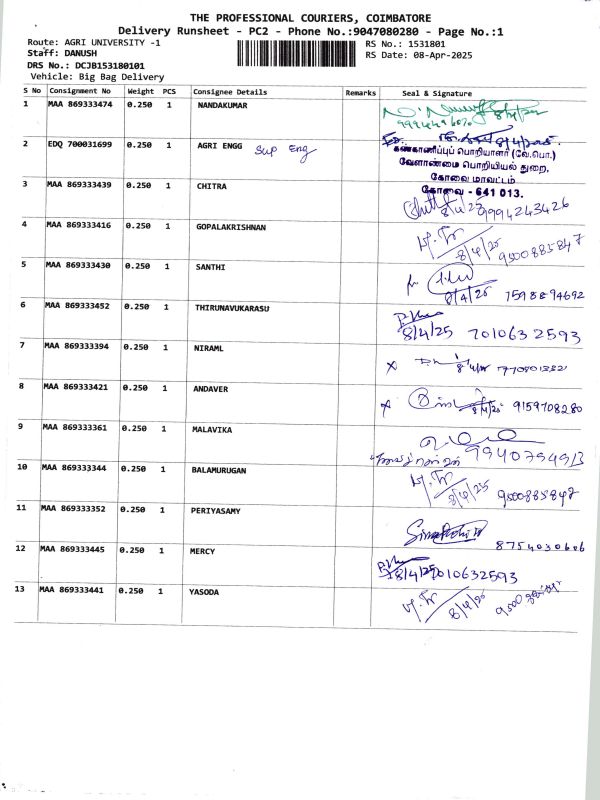 THE PROFESSIONAL COURIERS, COIMBATORE
Delivery Runsheet - PC2 - Phone No.:9047080280 - Page No.:1
Route: AGRI UNIVERSITY -1 RS No.: 1531801
Staff: DANUSH RS Date: 08-Apr-2025
DRS No.: DCJB153180101
Vehicle: Big Bag Delivery
S No Consignment No Weight PCS Consignee Details Remarks Seal & Signature
1 MAA 869333474 0.250 1 NANDAKUMAR
2 EDQ 700031699 0.250 1 AGRI ENGG Sup Eng 8/4/2025
கண்காணிப்புப் பொறியாளர் (வே.பொ.)
வேளாண்மை பொறியியல் துறை,
கோவை மாவட்டம்
கோவை - 641 013.
3 MAA 869333439 0.250 1 CHITRA 9994243426
4 MAA 869333416 0.250 1 GOPALAKRISHNAN 8/4/25 9500885847
5 MAA 869333430 0.250 1 SANTHI 8/4/25 7598894692
6 MAA 869333452 0.250 1 THIRUNAVUKARASU 8/4/25 7010632593
7 MAA 869333394 0.250 1 NIRAML
8 MAA 869333421 0.250 1 ANDAVER 9159708280
9 MAA 869333361 0.250 1 MALAVIKA 9940794913
10 MAA 869333344 0.250 1 BALAMURUGAN 8/4/25 9500885847
11 MAA 869333352 0.250 1 PERIYASAMY 8754030606
12 MAA 869333445 0.250 1 MERCY 8/4/25 7010632593
13 MAA 869333441 0.250 1 YASODA 8/4/25